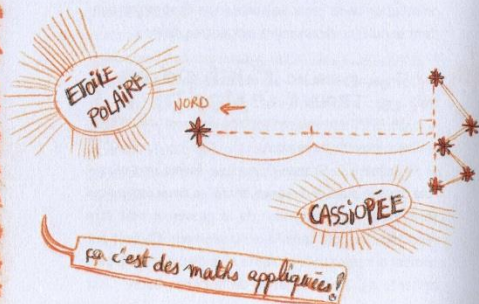 ÉTOILE
POLAIRE
NORD
CASSIOPÉE
ça c'est des maths appliquées!